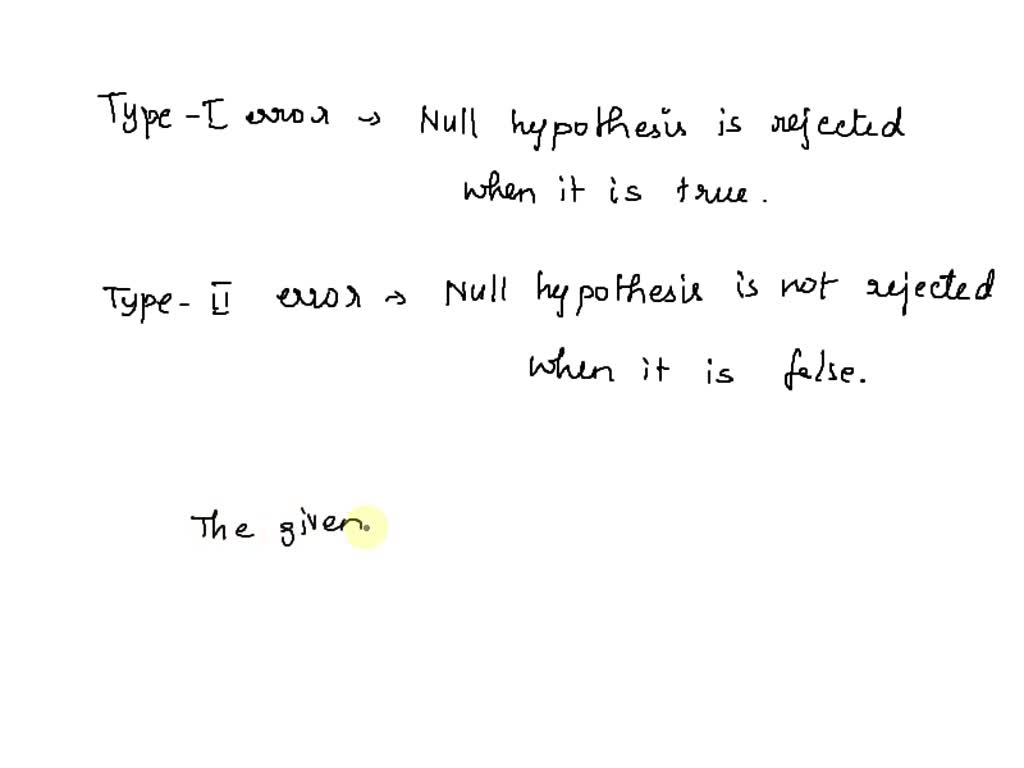 Type - I error → Null hypothesis is rejected
when it is true.
Type - II error → Null hypothesis is not rejected
when it is false.
The given